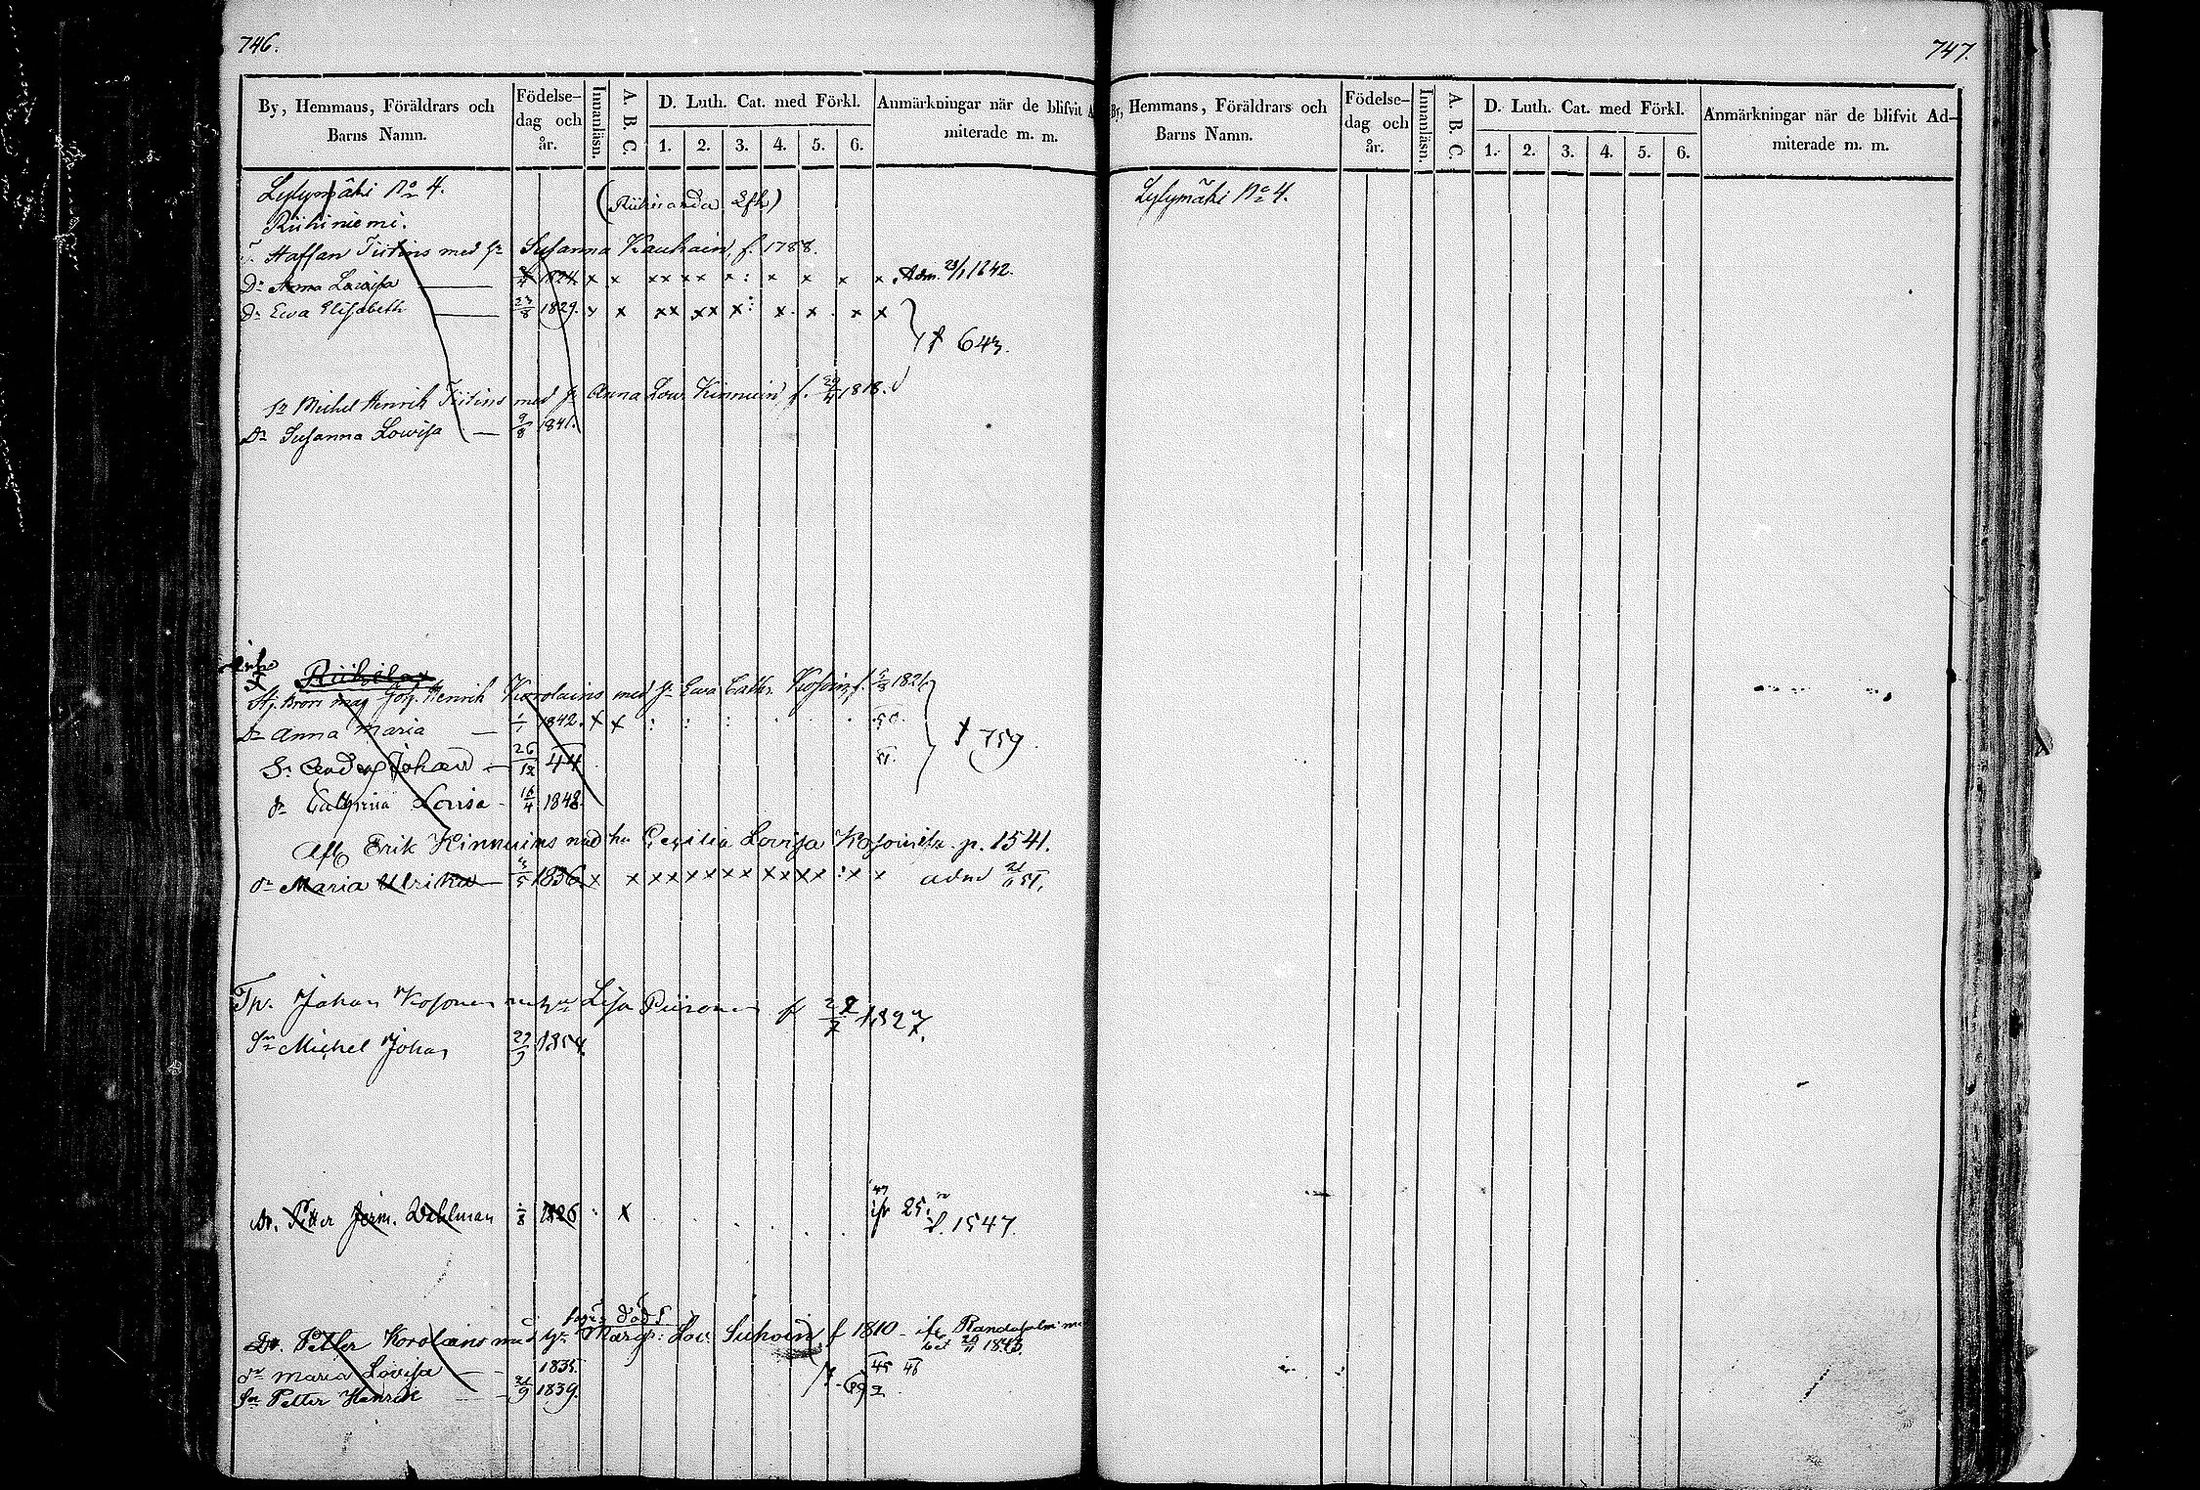 746.
By, Hemmans, Föräldrars och Barns Namn.
Födelse-dag och år.
Innanläsn.
A. B. C.
D. Luth. Cat. med Förkl.
1. 2. 3. 4. 5. 6.
Anmärkningar när de blifvit
miterade m. m.
Lylymäki No 4.
Riihiniemi.
Staffan Tiitins med hu Susanna Kauhain, f. 1788.
Dr Anna Lowisa — 1824. x x xx xx x : x x x x Adm. 1842.
Dr Ewa Elisabeth — 23/8 1829. x x xx xx x : x . x . x x
f 643.
Sn Michel Henrik Tiitins med hu Anna Low. Kinnuin, f. 1818.
Dr Susanna Lowisa — 9/8 1841.
Joh. Henrik Korolains med hu Ewa Cath. Kosoin, f. 1821
Dr Anna Maria — 1842. x x : : : . . . 50.
f 759.
Sn Anders Johan — 26/12 44 51.
dr Cathrina Lovisa - 16/4 1848.
Erik Kinnuins med hu Cecilia Lovisa Kosoin p. 1541.
dr Maria Ulrika — 1836 x x xx xx xx xx xx : x x adm 51.
Johan Kosonen Lisa Piironen f 1827.
Sn Michel Johan 1854.
Dr. Petter Jerm. Wahlman 1/8 1826 : x
25. f. 1547.
död
Dr. Petter Korolains med hu Margr: Lov. Suhoin f 1810 - Randasalmi
bet 1843.
dr Maria Lovisa — 1835. 45 46
Sn Petter Henrik — 21/9 1839.
747.
By, Hemmans, Föräldrars och Barns Namn.
Födelse-dag och år.
Innanläsn.
A. B. C.
D. Luth. Cat. med Förkl.
1. 2. 3. 4. 5. 6.
Anmärkningar när de blifvit Ad-
miterade m. m.
Lylymäki No 4.